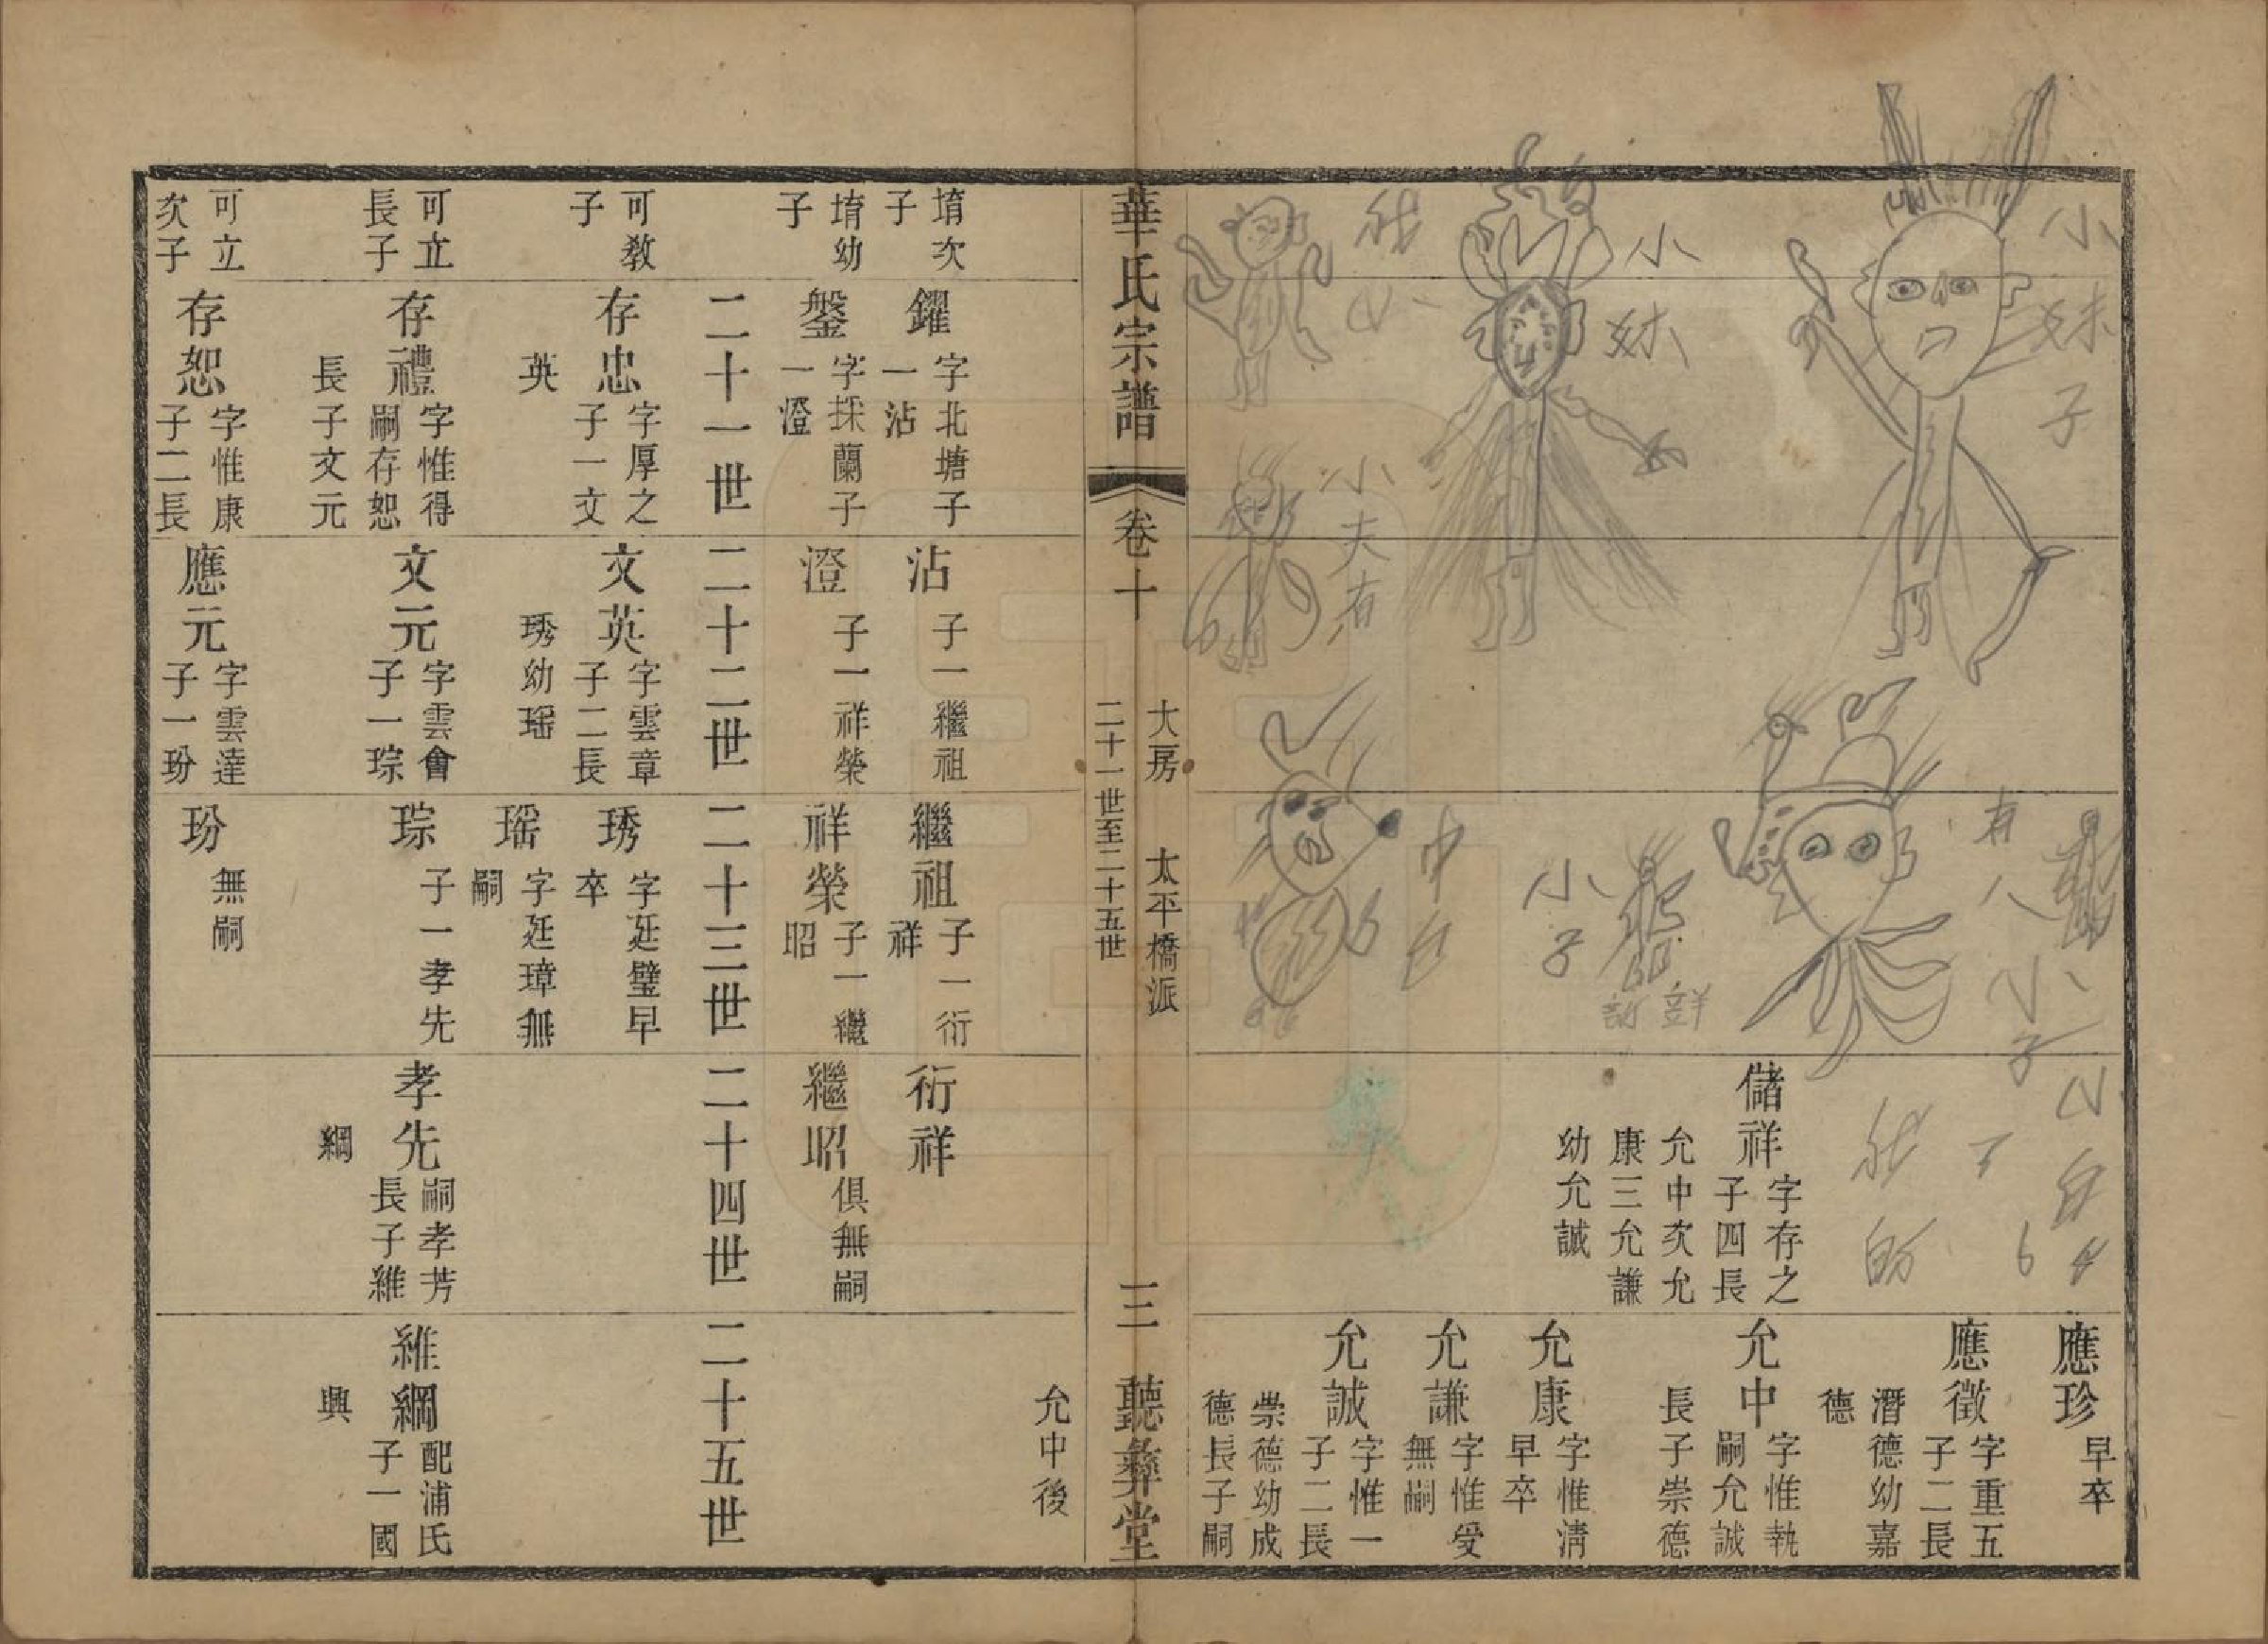 儲祥
字存之
子四長
允中次允
康三允謙
幼允誠
應珍
早卒
應徵
字重五
子二長
潛德幼嘉
德
允中
字惟執
嗣允誠
長子崇德
允康
字惟清
早卒
允謙
字惟受
無嗣
允誠
字惟一
子二長
崇德幼成
德長子嗣
小妹子
小妹
小夫有
小子
有人小子
華氏宗譜
卷十
大房 太平橋派
二十一世至二十五世
三
聽彝堂
允中後
堉次
子
鑃
字北塘子
一沾
沾
子一繼祖
繼祖
子一衍
祥
衍祥
堉幼
子
鎜
字採蘭子
一澄
澄
子一祥榮
祥榮
子一繼
昭
繼昭
俱無嗣
二十一世
二十二世
二十三世
二十四世
二十五世
可教
子
存忠
字厚之
子一文
英
文英
字雲章
子二長
琇幼瑶
琇
字廷璧早
卒
瑶
字廷璋無
嗣
可立
長子
存禮
字惟得
嗣存恕
長子文元
文元
字雲會
子一琮
琮
子一孝先
孝先
嗣孝芳
長子維
綱
維綱
配浦氏
子一國
興
可立
次子
存恕
字惟康
子二長
應元
字雲達
子一玢
玢
無嗣